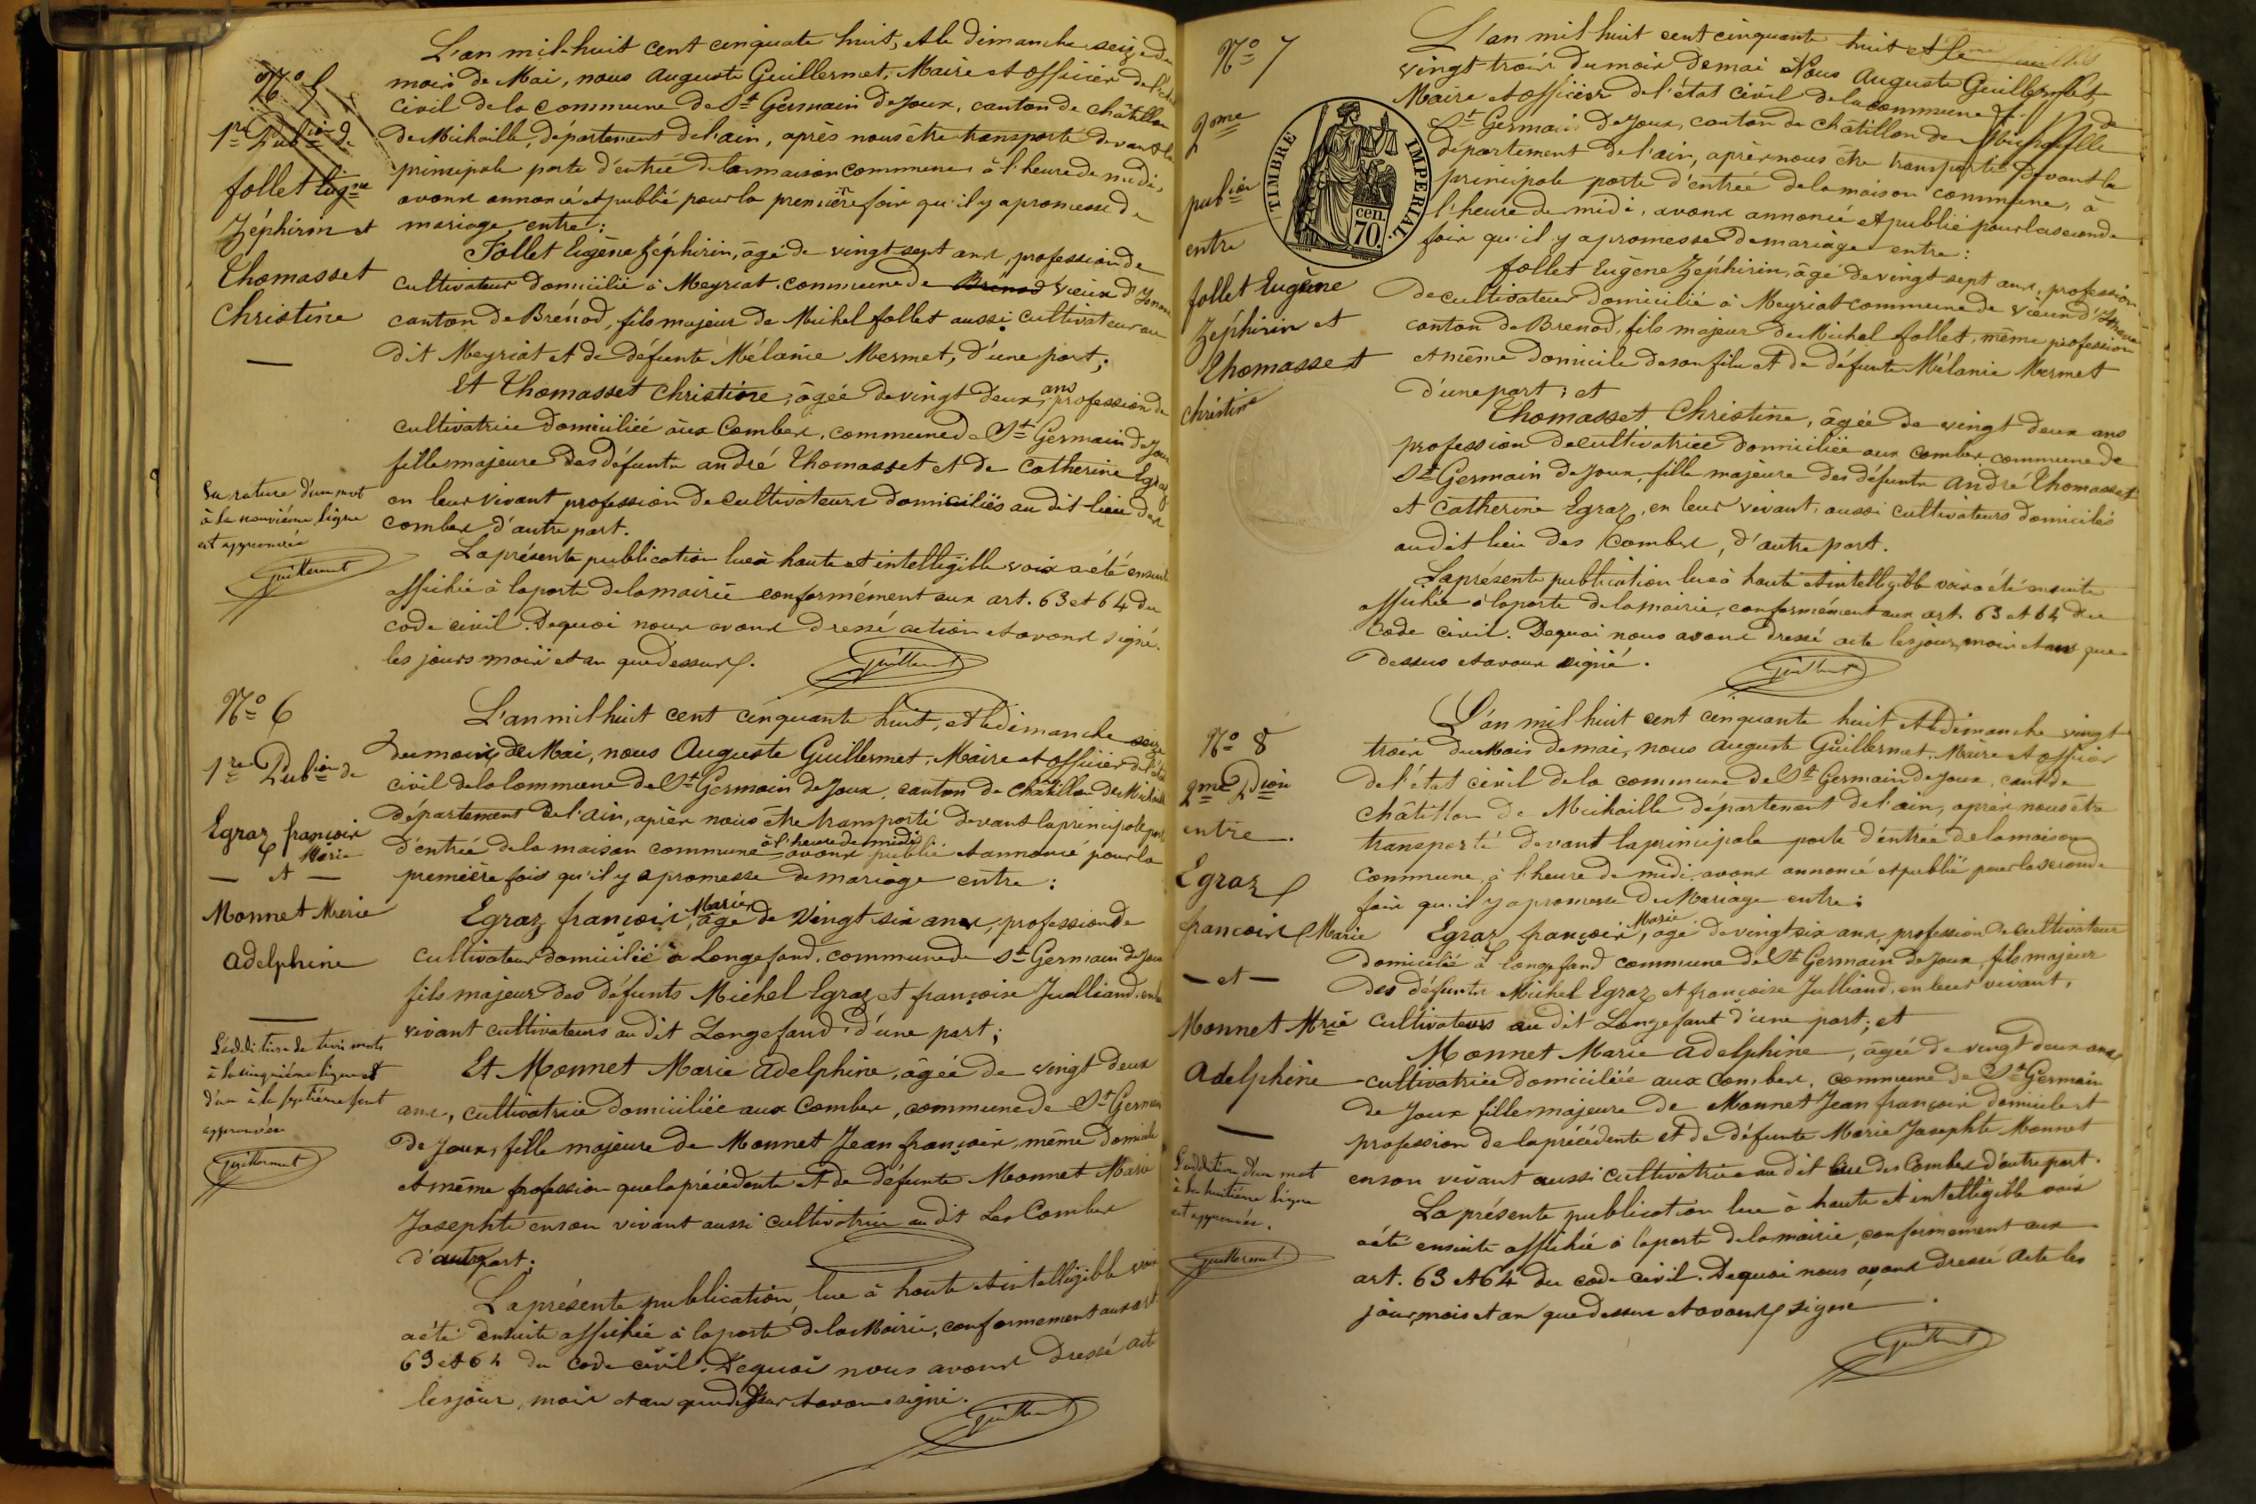 N° 5
1re Pubion de
follet Eugne
Zéphirin et
Thomasset
Christine
La rature d'un mot
à la neuvième ligne
est approuvée
Guillermet
L'an mil-huit cent cinquate huit, et le dimanche seize du
mois de Mai, nous Auguste Guillermet, Maire et officier de l'état
civil de la Commune de St Germain de Joux, canton de Châtillon
de Michaille, département de l'ain, après nous être transporté devant la
principale porte d'entrée de la maison commune, à l'heure de midi,
avons annoncé et publié pour la première fois qu'il y a promesse de
mariage entre :
Follet Eugène Zéphirin, âgé de vingt sept ans, profession de
cultivateur domicilié à Meyriat, commune de Brénod Vieux d'Izenave
canton de Brénod, fils majeur de Michel follet aussi cultivateur au
dit Meyriat et de défunte Mélanie Mermet, d'une part ;
Et Thomasset Christine, âgée de vingt deux ans, profession de
cultivatrice domiciliée aux Combes, commune de St Germain de Joux
fille majeure des défunts andré Thomasset et de Catherine Egraz
en leur vivant profession de cultivateurs domiciliés au dit lieu des
Combes d'autre part.
La présente publication lue à haute et intelligible voix a été ensuite
affichée à la porte de la mairie conformément aux art. 63 et 64 du
code civil. De quoi nous avons dressé action et avons signé.
les jours mois et an que dessus.
Guillermet
N° 6
1re Pubion de
Egraz françois
Marie
— et —
Monnet Marie
adelphine
L'addition de trois mots
à la cinquième ligne et
d'un à la septième sont
approuvées
Guillermet
L'an mil huit cent cinquante huit, et le dimanche seize
du mois de Mai, nous Auguste Guillermet, Maire et officier de l'état
civil de la Commune de St Germain de Joux, canton de Châtillon de Michaille
département de l'Ain, après nous être transporté devant la principale porte
d'entrée de la maison commune à l'heure de midi avons publié et annoncé pour la
première fois qu'il y a promesse de mariage entre :
Egraz françois Marie, âgé de Vingt six ans, profession de
cultivateur domicilié à Longefand, commune de St Germain de Joux
fils majeur des défunts Michel Egraz et françoise Julliand, en leur
vivant cultivateurs au dit Longefand d'une part ;
Et Monnet Marie adelphine, âgée de vingt deux
ans, cultivatrice domiciliée aux Combes, commune de St Germain
de Joux, fille majeure de Monnet Jean françois, même domicile
et même profession que la précédente et de défunte Monnet Marie
Josephte en son vivant aussi cultivatrice au dit Les Combes
d'autre part ;
La présente publication, lue à haute et intelligible voix
a été ensuite affichée à la porte de la Mairie, conformément aux art
63 et 64 du code civil. De quoi nous avons dressé acte
les jour, mois et an que dessus et avons signé.
Guillermet
N° 7
2ome
pubion
entre
follet Eugène
Zéphirin et
Thomasset
Christine
TIMBRE IMPERIAL
cen.
70.
L'an mil huit cent cinquante huit et le
vingt-trois du mois de mai Nous Auguste Guillermet,
Maire et officier de l'état civil de la commune de
St Germain de Joux, canton de Châtillon de Michaille
département de l'ain, après nous être transporté devant la
principale porte d'entrée de la maison commune, à
l'heure de midi, avons annoncé et publié pour la seconde
fois qu'il y a promesse de mariage entre :
follet Eugène Zéphirin, âgé de vingt sept ans, profession
de cultivateur domicilié à Meyriat commune de Vieux d'Izenave
canton de Brenod, fils majeur de Michel follet, même profession
et même domicile de son fils et de défunte Mélanie Mermet
d'une part ; et
Thomasset Christine, âgée de vingt deux ans
profession de cultivatrice domiciliée aux combes commune de
St Germain de Joux, fille majeure des défunts André Thomasset
et Catherine Egraz, en leur vivant, aussi cultivateurs domiciliés
au dit lieu des Combes, d'autre part.
La présente publication lue à haute et intelligible voix a été ensuite
affichée à la porte de la mairie, conformément aux art. 63 et 64 du
Code civil. De quoi nous avons dressé acte les jour, mois et an que
dessus et avons signé.
Guillermet
N° 8
2me Pion
entre
Egraz
françois Marie
— et —
Monnet Mrie
Adelphine
L'addition d'un mot
à la huitième ligne
est approuvée.
Guillermet
L'an mil huit cent cinquante huit et le dimanche vingt
trois du Mois de mai, nous Auguste Guillermet, Maire et officier
de l'état civil de la commune de St Germain de Joux, cant. de
Châtillon de Michaille département de l'ain, après nous être
transporté devant la principale porte d'entrée de la maison
Commune, à l'heure de midi, avons annoncé et publié pour la seconde
fois qu'il y a promesse du Mariage entre :
Egraz françois Marie, âgé de vingt six ans, profession de cultivateur
domicilié à Longefand commune de St Germain de Joux, fils majeur
des défunts Michel Egraz et françoise Julliand, en leur vivant,
cultivateurs au dit Longefant d'une part ; et
Monnet Marie adelphine, âgée de vingt deux ans,
cultivatrice domiciliée aux Combes, commune de St Germain
de Joux fille majeure de Monnet Jean françois domicile et
profession de la précédente et de défunte Marie Josephte Monnet
en son vivant aussi cultivatrice au dit lieu des Combes d'autre part.
La présente publication lue à haute et intelligible voix
a été ensuite affichée à la porte de la mairie, conformément aux
art. 63 et 64 du code civil. De quoi nous avons dressé Acte les
jour, mois et an que dessus et avons signé.
Guillermet